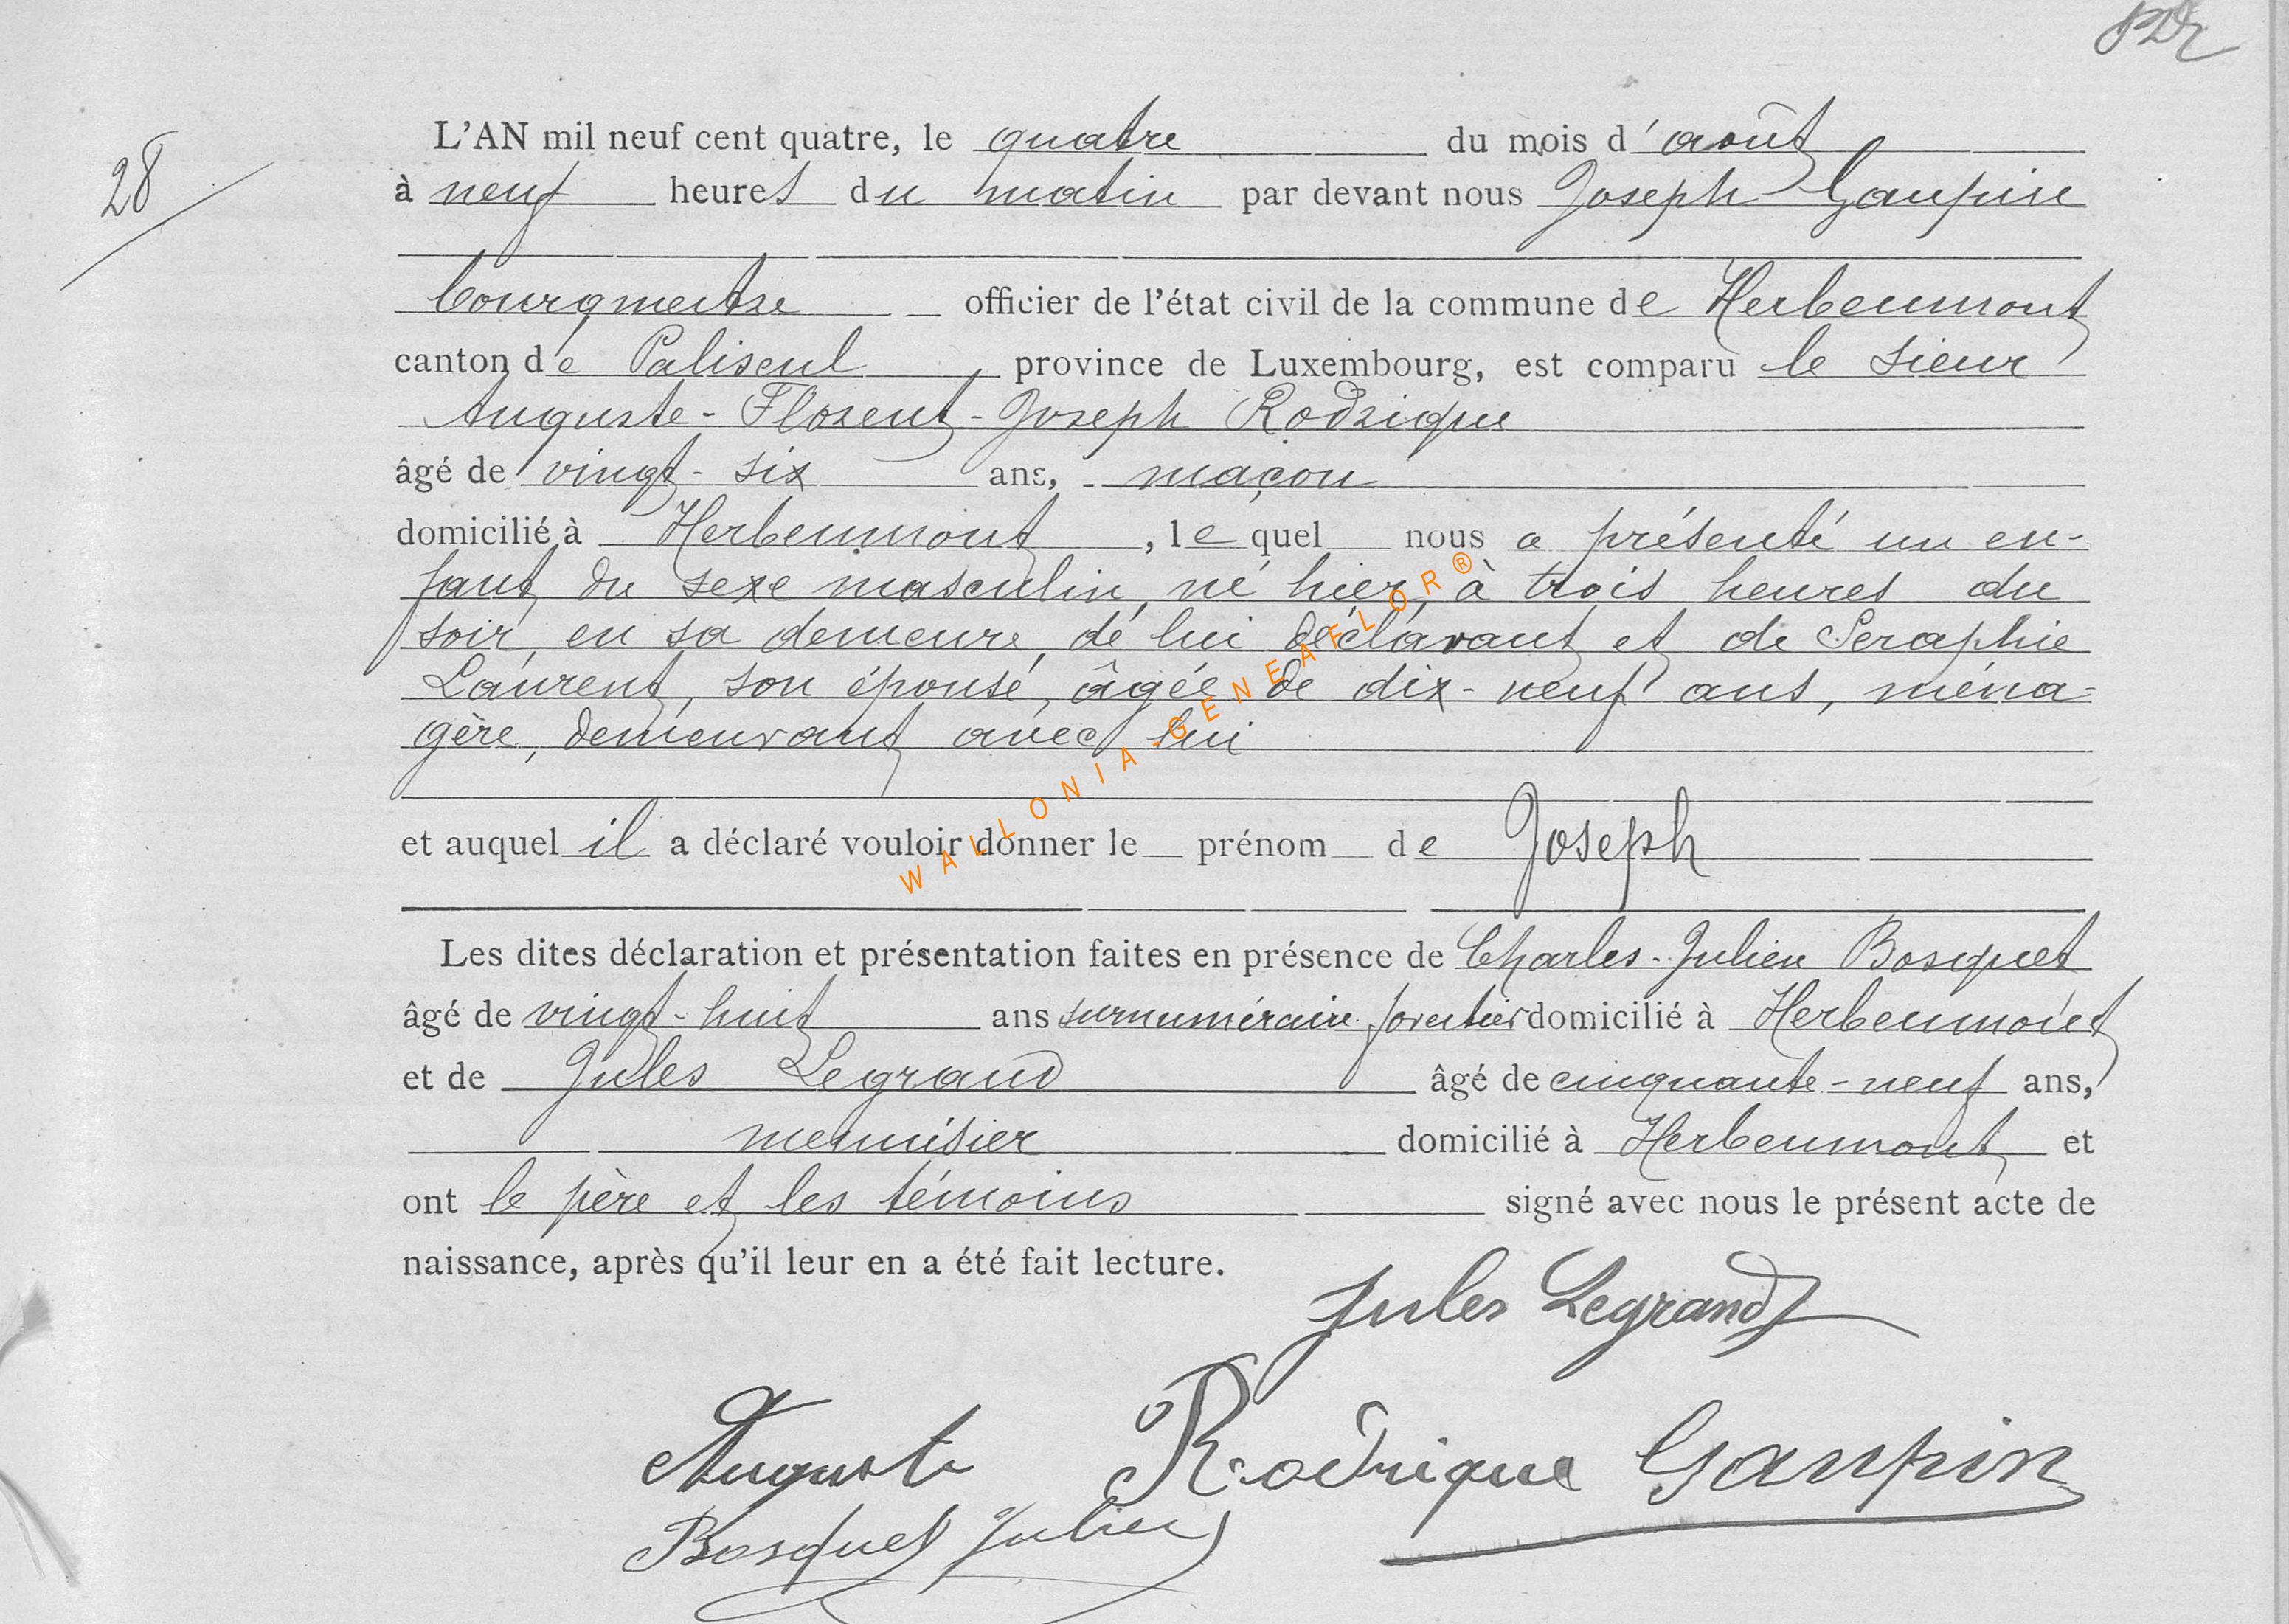 28
L'AN mil neuf cent quatre, le quatre du mois d'août
à neuf heures du matin par devant nous Joseph Gaupin
bourgmestre officier de l'état civil de la commune de Herbeumont
canton de Paliseul province de Luxembourg, est comparu le sieur
Auguste-Florent-Joseph Rodrique
âgé de vingt-six ans, maçon
domicilié à Herbeumont, lequel nous a présenté un en-
fant du sexe masculin, né hier, à trois heures du
soir, en sa demeure, de lui déclarant et de Seraphie
Laurent, son épouse, âgée de dix-neuf ans, ména-
gère, demeurant avec lui
et auquel il a déclaré vouloir donner le prénom de Joseph
Les dites déclaration et présentation faites en présence de Charles-Julien Bosquet
âgé de vingt-huit ans surnuméraire forestier domicilié à Herbeumont
et de Jules Legrand âgé de cinquante-neuf ans,
menuisier domicilié à Herbeumont et
ont le père et les témoins signé avec nous le présent acte de
naissance, après qu'il leur en a été fait lecture.
Jules Legrand
Auguste Rodrique Gaupin
Bosquet Julien
WALLONIA-GENEAFLOR®